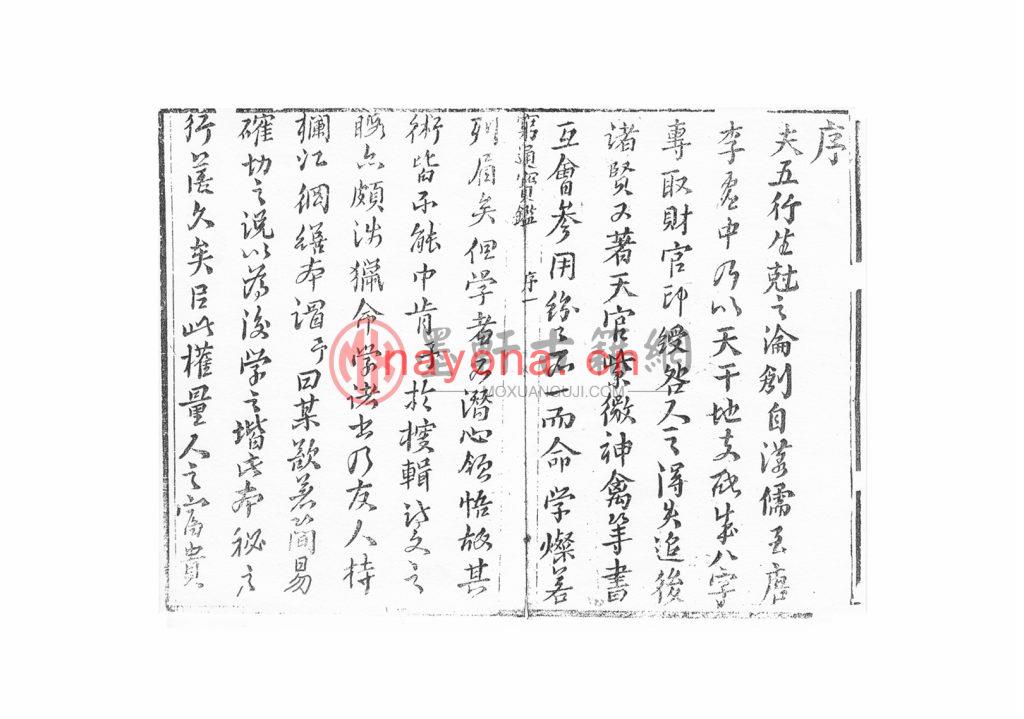 序
夫五行生尅之論創自漢儒至唐
李虛中乃以天干地支配成八字
專取財官印綬咎人之得失追後
諸賢又著天官紫微神禽等書
互會參用紛紜不一而命学燦若
窮通寶鑑
序一
列眉矣但学者不潛心領悟故其
術皆不能中肯予於搜輯詩文之
暇亦頗涉獵命学諸書乃友人持
欄江網繕本謂予曰某欲若簡易
確切之說以為後学之堦此本秘之
行篋久矣臣此權量人之富貴
墨軒古籍網
nayona.cn
MOXUANGUJI.COM